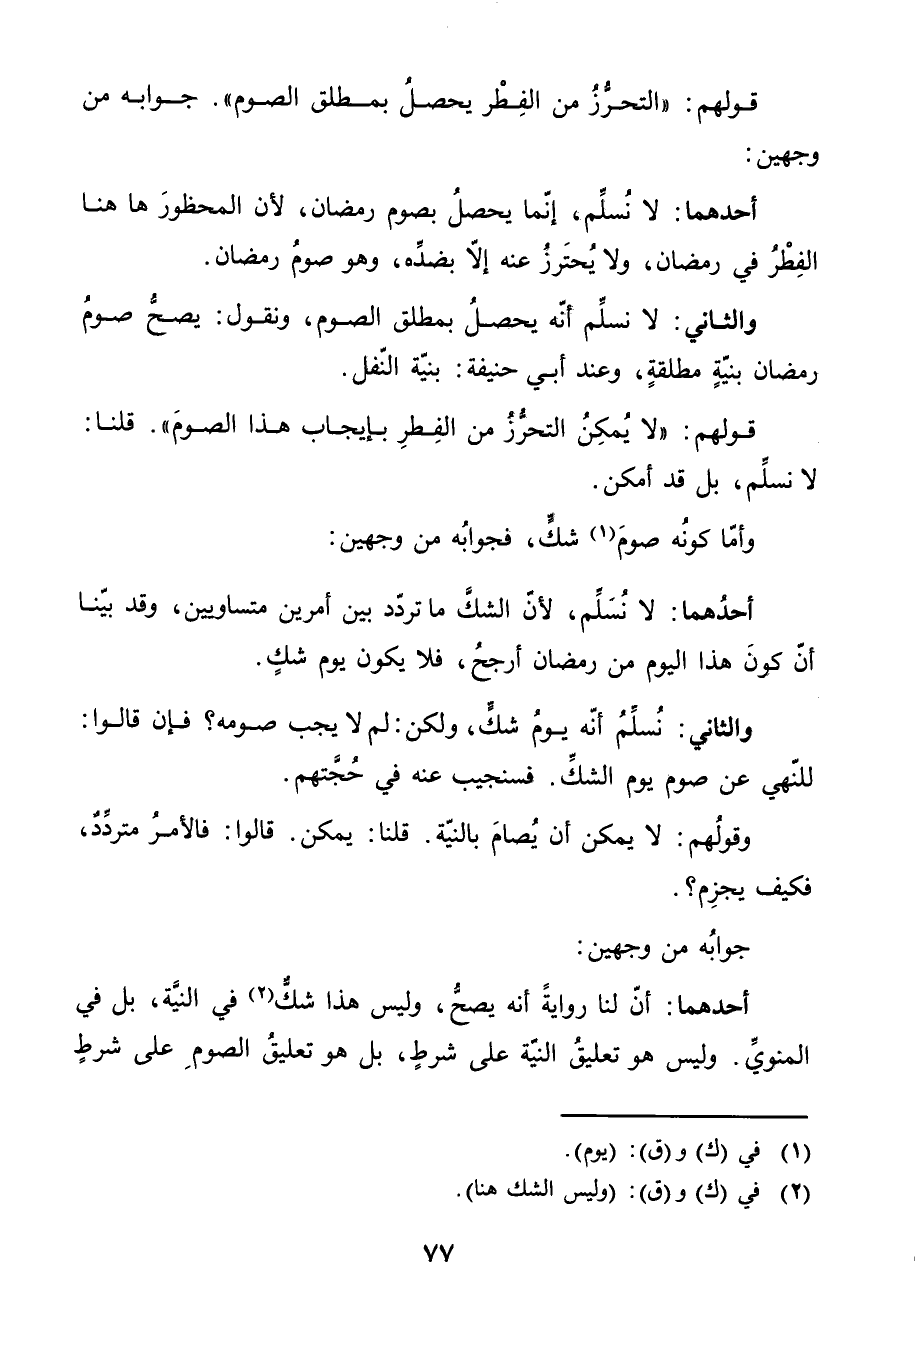 قولهم: «التحرُّزُ من الفِطْر يحصلُ بمطلق الصوم». جوابه من
وجهين:
أحدهما: لا نُسلِّم، إنّما يحصلُ بصوم رمضان، لأن المحظورَ ها هنا
الفِطْرُ في رمضان، ولا يُحتَرزُ عنه إلاّ بضدِّه، وهو صومُ رمضان.
والثاني: لا نسلِّم أنّه يحصلُ بمطلق الصوم، ونقول: يصحُّ صومُ
رمضان بنيّةٍ مطلقةٍ، وعند أبي حنيفة: بنيّة النّفل.
قولهم: «لا يُمكِنُ التحرُّزُ من الفِطرِ بإيجاب هذا الصومَ». قلنا:
لا نسلِّم، بل قد أمكن.
وأمّا كونُه صومَ(١) شكٍّ، فجوابُه من وجهين:
أحدُهما: لا نُسَلِّم، لأنّ الشكَّ ما تردّد بين أمرين متساويين، وقد بيّنا
أنّ كونَ هذا اليوم من رمضان أرجحُ، فلا يكون يوم شكٍ.
والثاني: نُسلِّمُ أنّه يومُ شكٍّ، ولكن: لم لا يجب صومه؟ فإن قالوا:
للنّهي عن صوم يوم الشكِّ. فسنجيب عنه في حُجَّتهم.
وقولُهم: لا يمكن أن يُصامَ بالنيّة. قلنا: يمكن. قالوا: فالأمرُ متردِّدٌ،
فكيف يجزِم؟.
جوابُه من وجهين:
أحدهما: أنّ لنا روايةً أنه يصحُّ، وليس هذا شكٌّ(٢) في النيَّة، بل في
المنويِّ. وليس هو تعليقُ النيّة على شرطٍ، بل هو تعليقُ الصومِ على شرطٍ
(١) في (ك) و(ق): (يوم).
(٢) في (ك) و(ق): (وليس الشك هنا).
٧٧